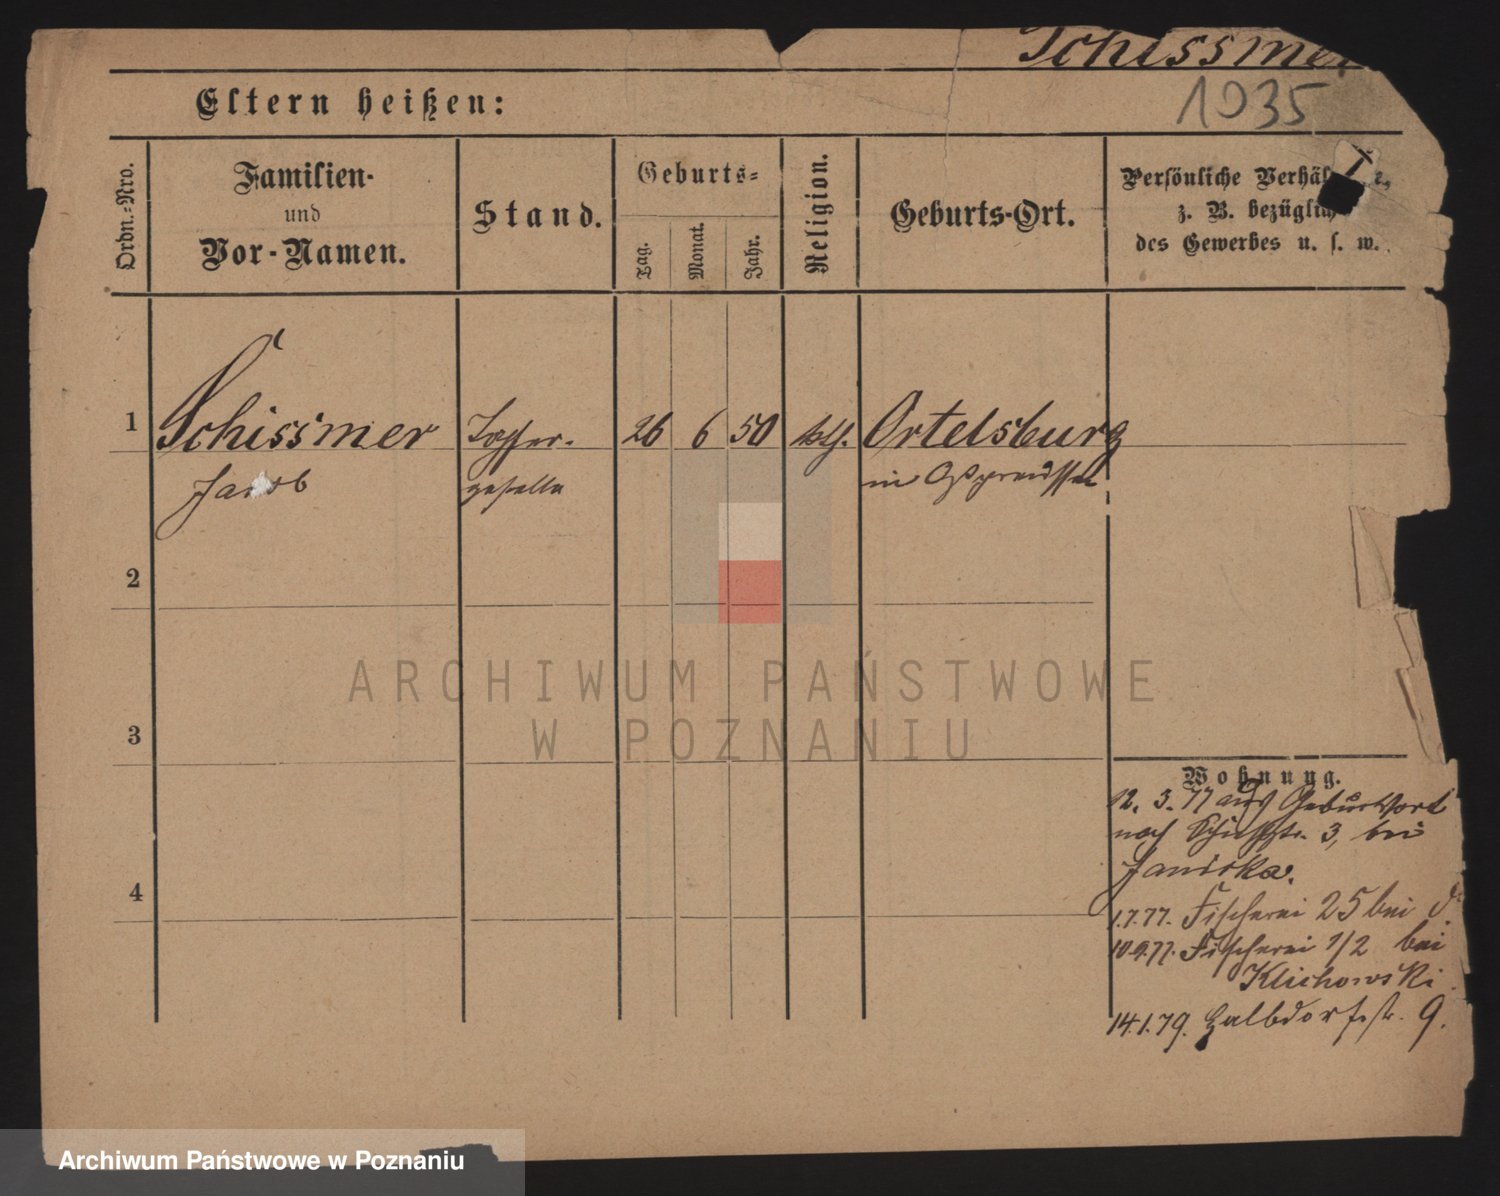 Schissmer
1035
Eltern heißen:
Ordn.-Nro.
Familien-
und
Vor-Namen.
Stand.
Geburts-
Tag.
Monat.
Jahr.
Religion.
Geburts-Ort.
Persönliche Verhäl
z. B. bezüglich
des Gewerbes u. s. w.
1
Schissmer
Töpfer-
26
6
50
kth.
Ortelsburg
Jacob
geselle
in Ostpreussen
2
3
4
Wohnung.
12. 3. 77 aus Geburtsort
nach Schießstr. 3, bei
1.7.77. Fischerei 25 bei
10.9.77. Fischerei 1/2 bei
Klichowski
14.1.79. Halbdorfstr. 9.
ARCHIWUM PAŃSTWOWE
W POZNANIU
Archiwum Państwowe w Poznaniu